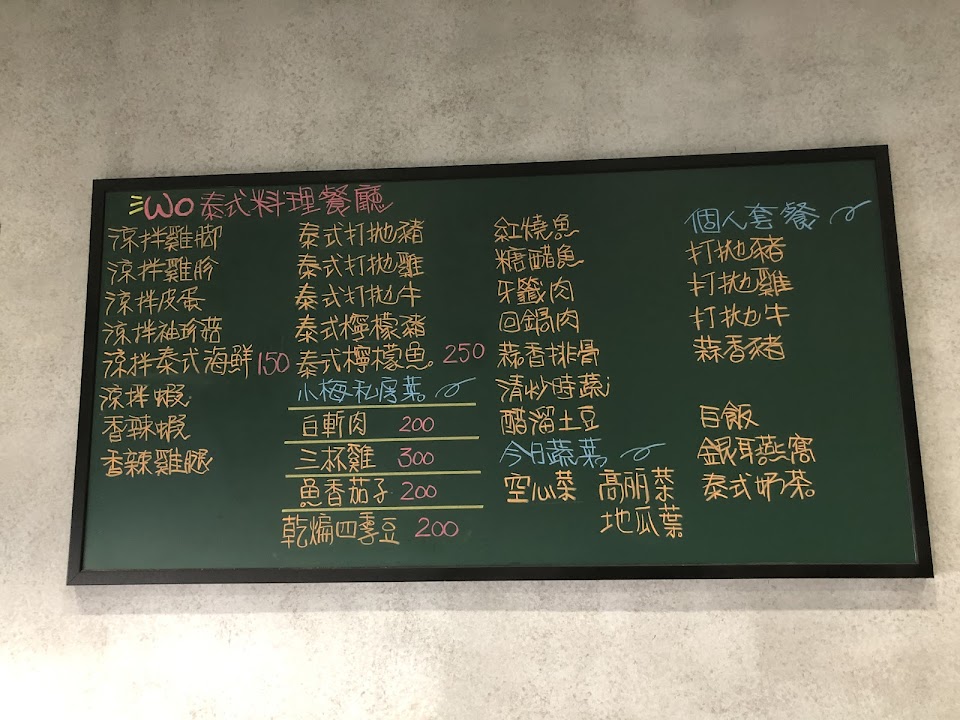 Wo 泰式料理餐廳
涼拌雞腳
涼拌雞胗
涼拌皮蛋
涼拌袖珍菇
涼拌泰式海鮮 150
涼拌蝦
香辣蝦
香辣雞腿
泰式打拋豬
泰式打拋雞
泰式打拋牛
泰式檸檬豬
泰式檸檬魚 250
小梅私房菜
白斬肉 200
三杯雞 300
魚香茄子 200
乾煸四季豆 200
紅燒魚
糖醋魚
牙籤肉
回鍋肉
蒜香排骨
清炒時蔬
醋溜土豆
今日蔬菜
空心菜 高麗菜
地瓜葉
個人套餐
打拋豬
打拋雞
打拋牛
蒜香豬
白飯
銀耳燕窩
泰式奶茶